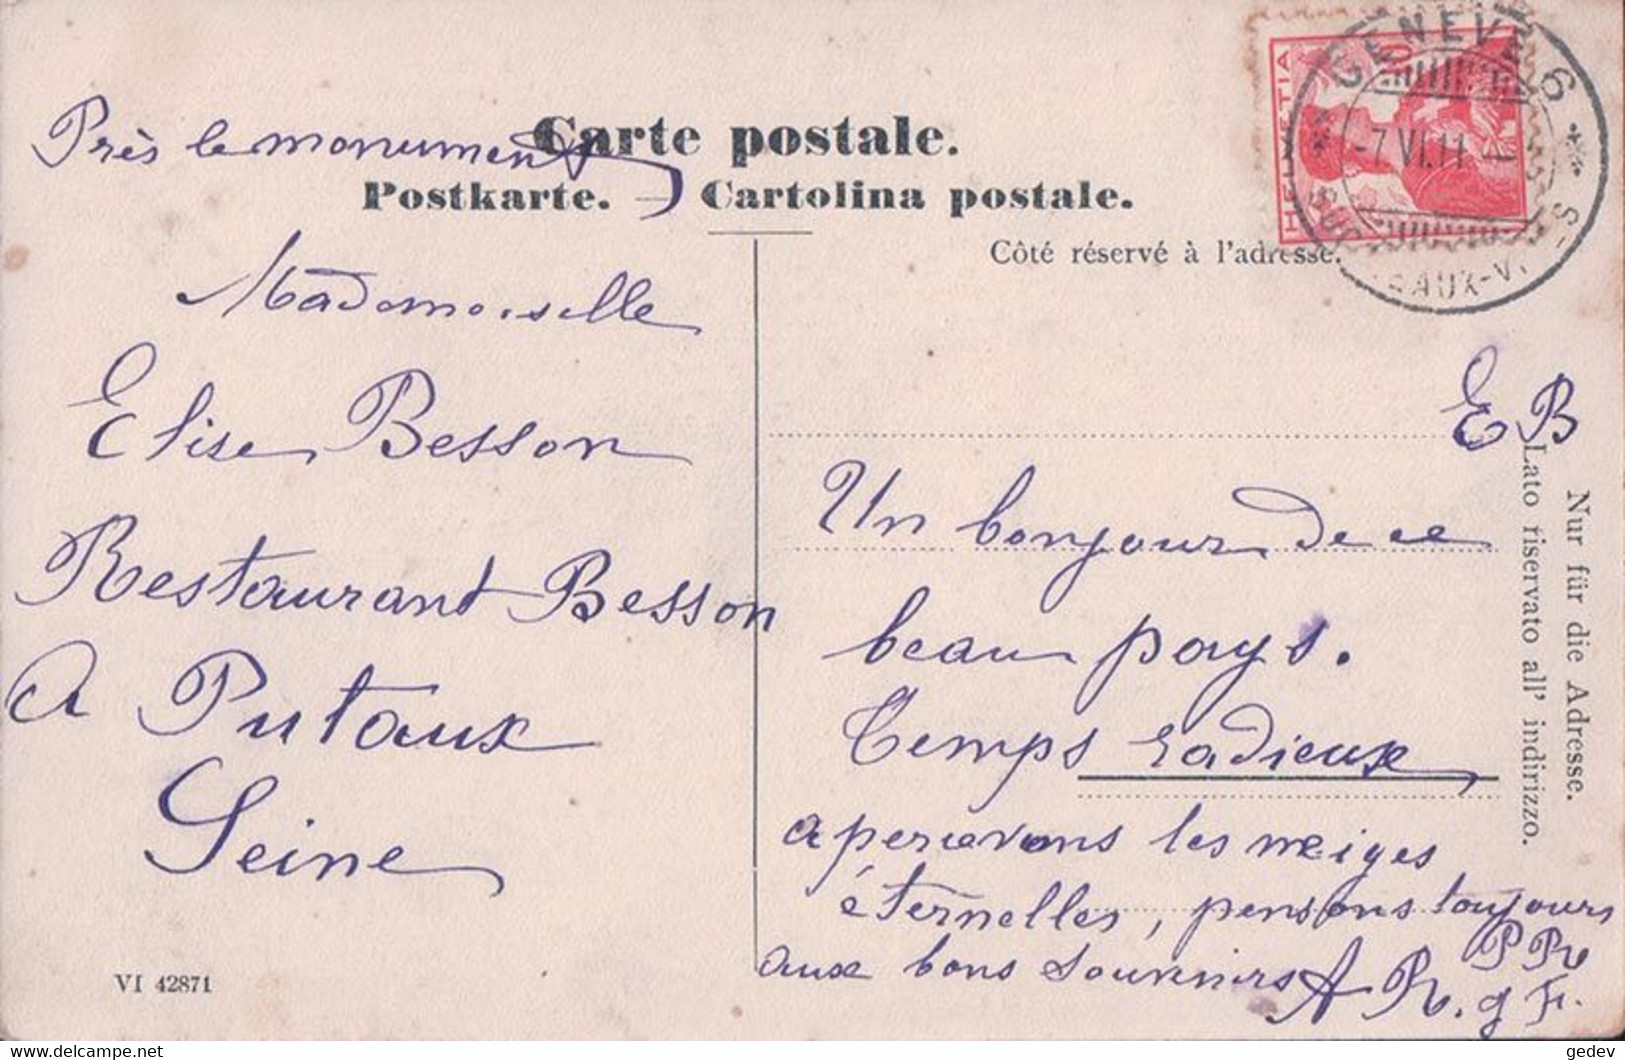 Près le monument
Carte postale.
Postkarte. — Cartolina postale.
Côté réservé à l'adresse.
HELVETIA
10
GENEVE 6
-7.VI.11-
EAUX-V
Mademoiselle
Elise Besson
Restaurant Besson
A Putaux
Seine
E B
Un bonjour de ce
beau pays.
Temps radieux
apercevons les neiges
éternelles, pensons toujours
aux bons souvenirs
A R. g F.
P R
Nur für die Adresse.
Lato riservato all' indirizzo.
VI 42871
gedev